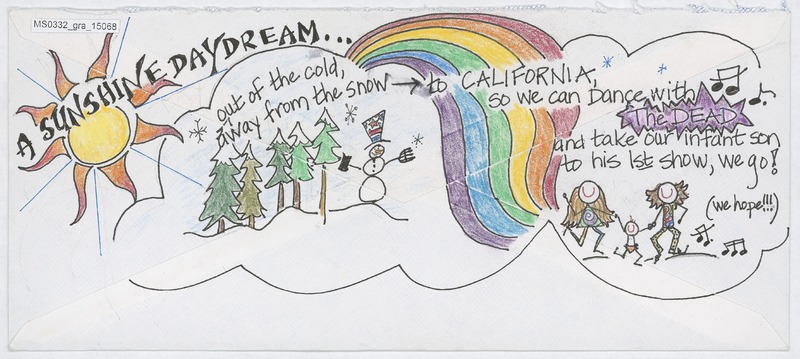 MS0332_gra_15068
A SUNSHINE DAYDREAM...
out of the cold,
away from the snow → to CALIFORNIA,
so we can Dance with
The DEAD
and take our infant son
to his 1st show, we go!
(we hope!!!)